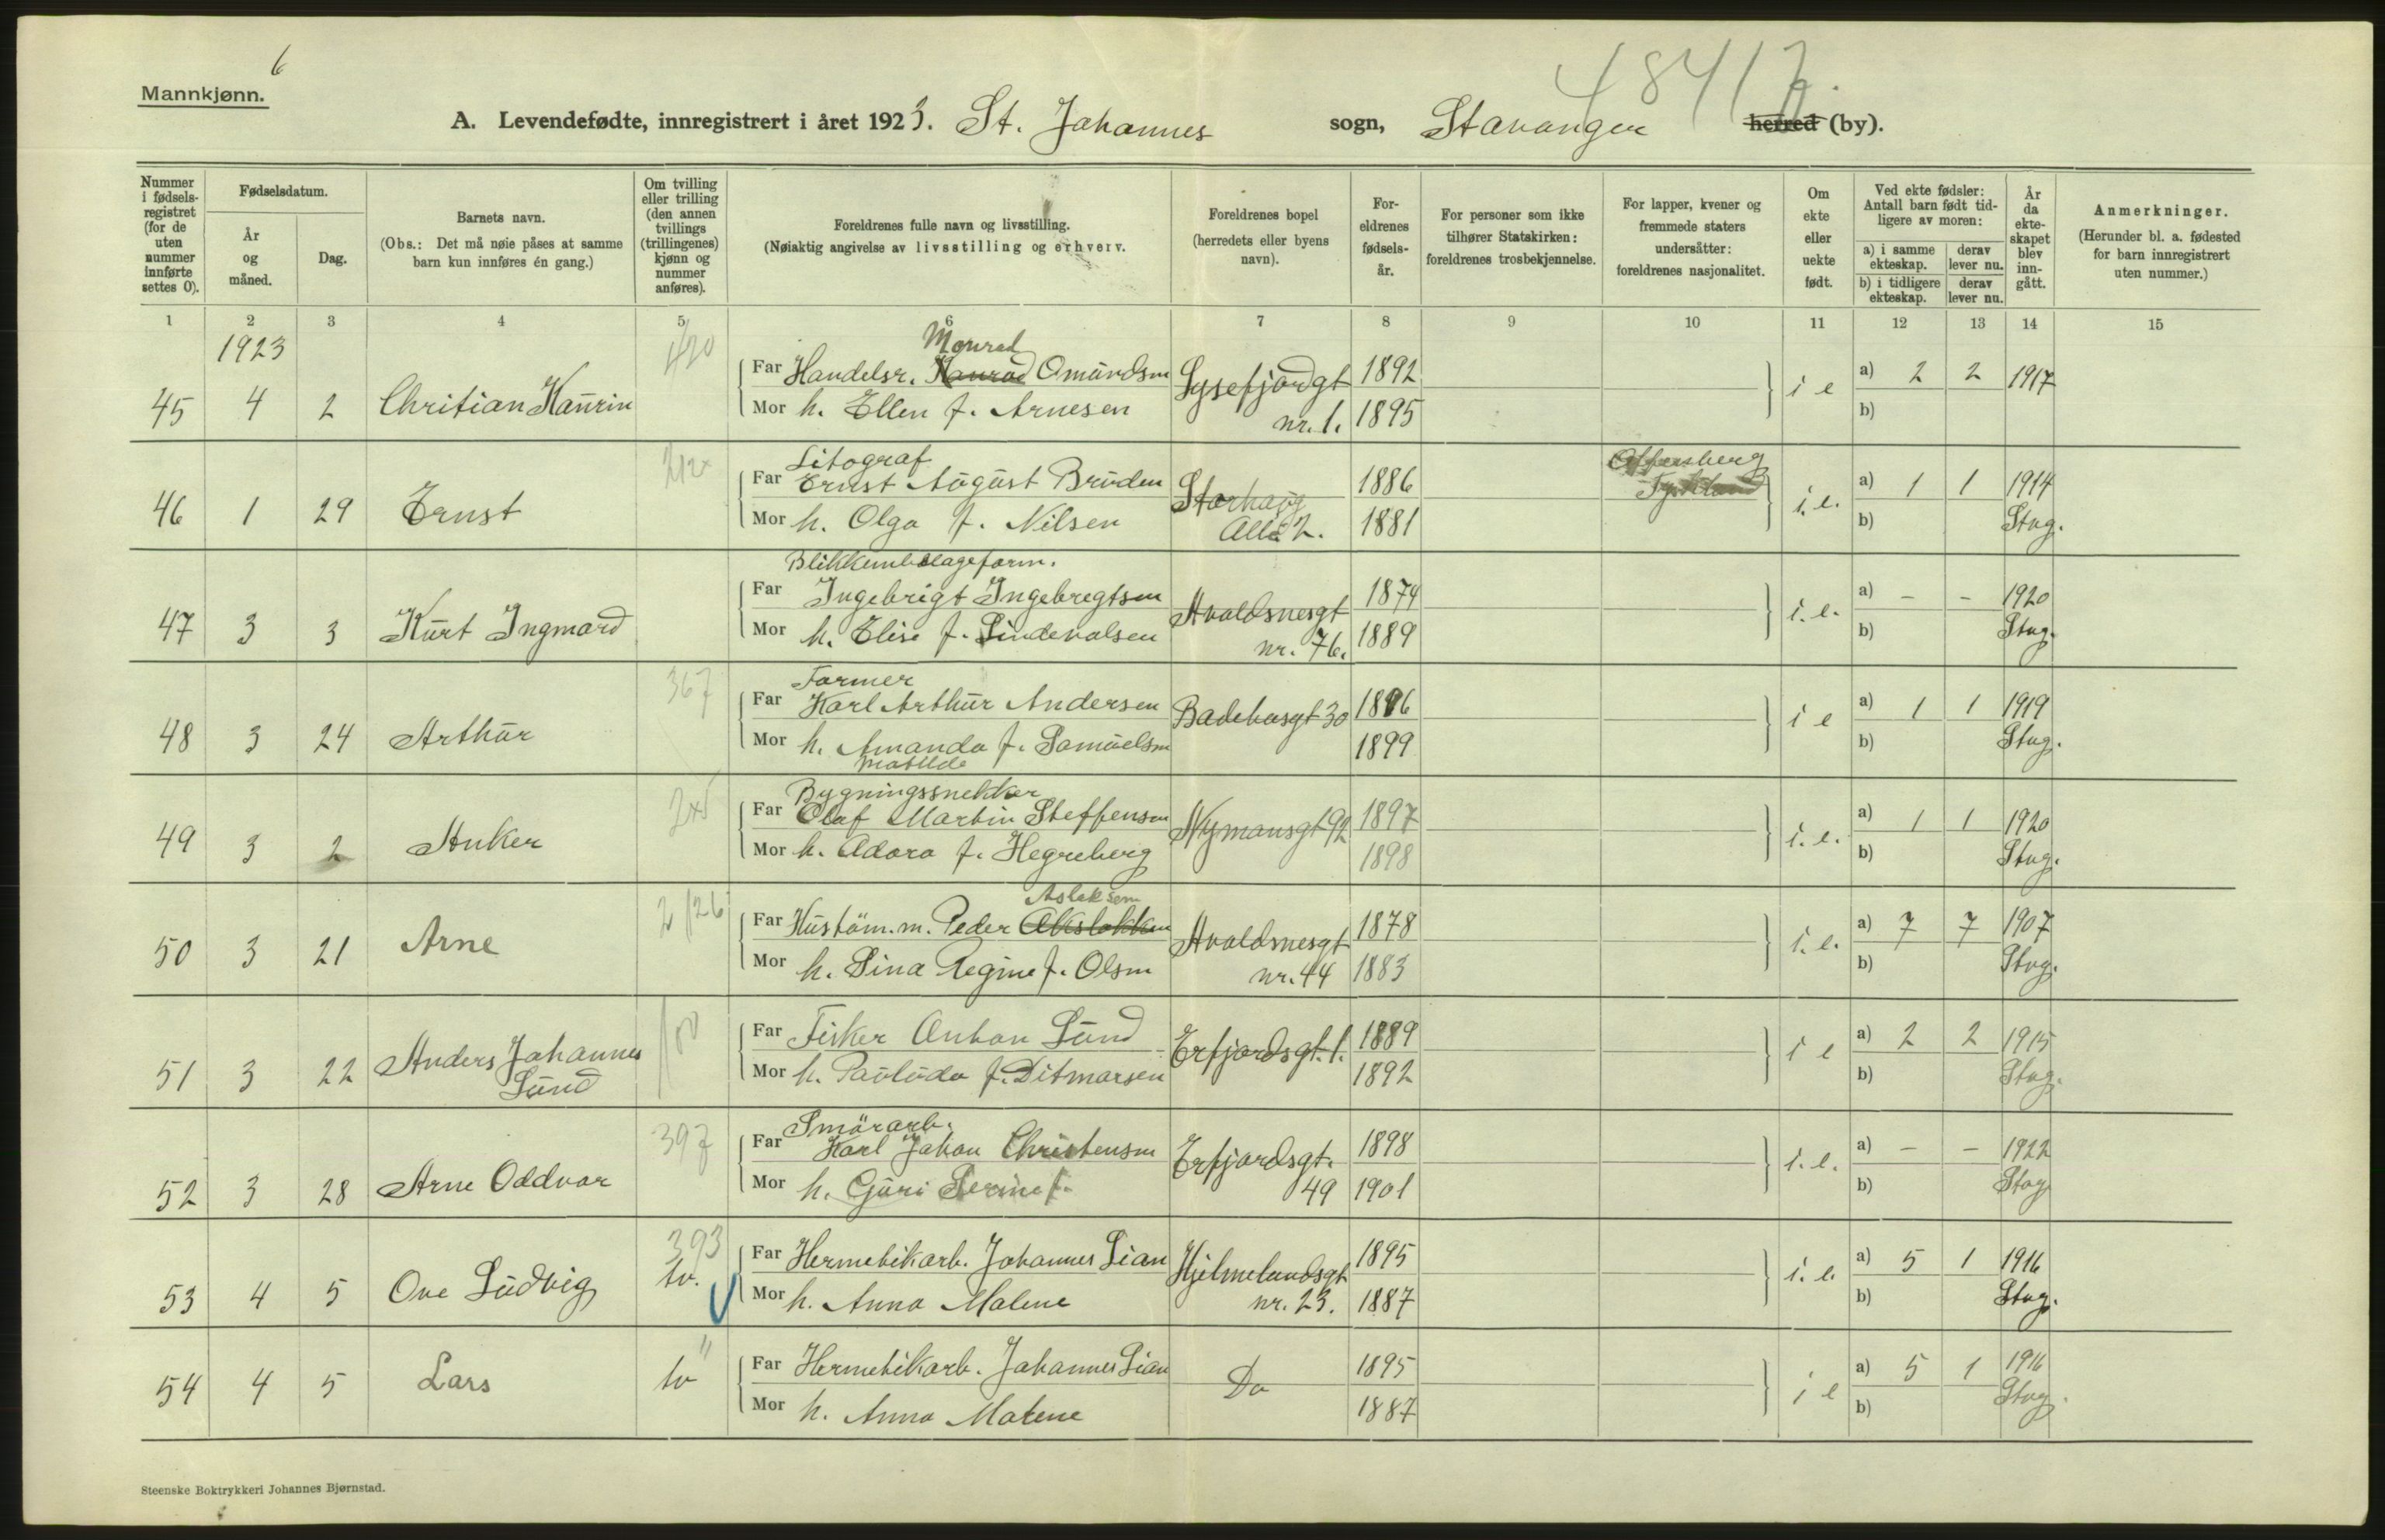 6
Mannkjønn.
48417
A. Levendefødte, innregistrert i året 1923. St. Johannes sogn, Stavanger herred (by).
Nummer i fødselsregistret (for de uten nummer innførte settes 0).
Fødselsdatum.
År og måned.
Dag.
Barnets navn.
(Obs.: Det må nøie påses at samme barn kun innføres én gang.)
Om tvilling eller trilling (den annen tvillings (trillingenes) kjønn og nummer anføres).
Foreldrenes fulle navn og livsstilling.
(Nøiaktig angivelse av livsstilling og erhverv.
Foreldrenes bopel (herredets eller byens navn).
Foreldrenes fødselsår.
For personer som ikke tilhører Statskirken: foreldrenes trosbekjennelse.
For lapper, kvener og fremmede staters undersåtter: foreldrenes nasjonalitet.
Om ekte eller uekte født.
Ved ekte fødsler: Antall barn født tidligere av moren:
a) i samme ekteskap. derav lever nu.
b) i tidligere ekteskap. derav lever nu.
År da ekteskapet blev inngått.
Anmerkninger.
(Herunder bl. a. fødested for barn innregistrert uten nummer.)
1 2 3 4 5 6 7 8 9 10 11 12 13 14 15
1923
420
Monrad
Far Handelsr. Konrad Omundsen Lysefjordgt 1892 a) 2 2 1917
45 4 2 Christian Kaurin i e
Mor h. Ellen f. Arnesen nr. 1. 1895 b)
212x
Litograf
Far Ernst August Bruden Storhaug 1886 Tyskland a) 1 1 1914
46 1 29 Ernst i.e.
Mor h. Olga f. Nilsen Allé 2. 1881 b) Stvg.
Blikkemballageform.
Far Ingebrigt Ingebregtsen Avaldsnesgt 1874 a) - - 1920
47 3 3 Kurt Ingmard i.e.
Mor h. Elise f. Lindevalsen nr. 76. 1889 b) Stvg.
367
Farmer
Far Karl Arthur Andersen Badehusgt 30 1896 a) 1 1 1919
48 3 24 Arthur i e
Mor h. Amanda f. Samuelsen 1899 b) Stvg.
Matilde
Bygningssnekker
Far Olaf Martin Steffensen Nymansgt 92 1897 a) 1 1 1920
49 3 2 Anker i.e.
Mor h. Adora f. Hegreberg 1898 b) Stvg.
2/26
Asleksen
Far Hustöm.m. Peder Avaldsnesgt 1878 a) 7 7 1907
50 3 21 Arne i.e.
Mor h. Sina Regine f. Olsen nr. 44 1883 b) Stvg.
100
Far Fisker Anton Lund Erfjordsgt. 1. 1889 a) 2 2 1915
51 3 22 Anders Johannes Lund i e
Mor h. Pauluda f. Ditmarsen 1892 b) Stvg.
397
Smörarb.
Far Karl Johan Christensen Erfjordsgt. 1898 a) - - 1922
52 3 28 Arne Oddvar i.e.
Mor h. Guri Serine f. 49 1901 b) Stvg
393
Far Hermetikarb. Johannes Lian Hjelmelandsgt 1895 a) 5 1 1916
53 4 5 Ove Ludvig tv. i.e.
Mor h. Anna Malene nr. 23. 1887 b) Stvg.
"
Far Hermetikarb. Johannes Lian Do 1895 a) 5 1 1916
54 4 5 Lars tv i e
Mor h. Anna Malene 1887 b) Stvg.
Steenske Boktrykkeri Johannes Bjørnstad.